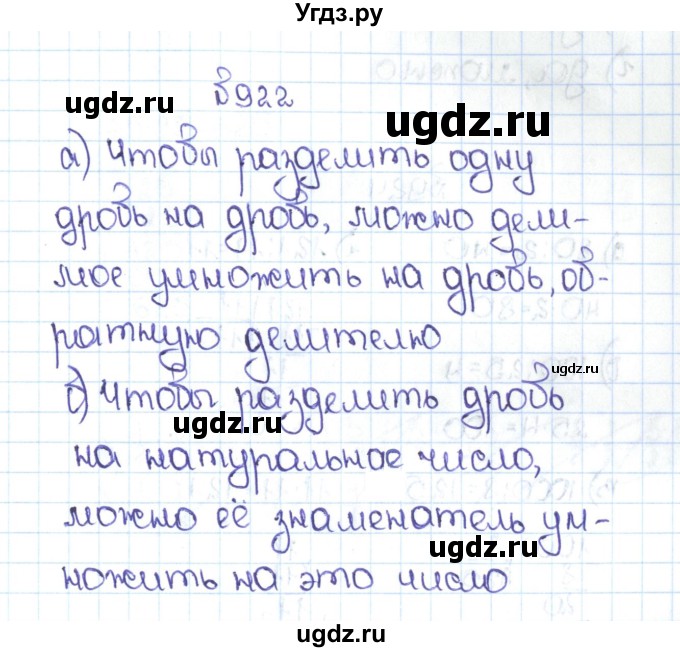 Угдз.ру
№922
ugdz.ru
ugdz.ru
а) Чтобы разделить одну
дробь на дробь, можно дели-
мое умножить на дробь, об-
ратную делителю
ugdz.ru
б) Чтобы разделить дробь
ugdz.ru
на натуральное число,
можно её знаменатель ум-
ugdz.ru
ножить на это число
ugdz.ru